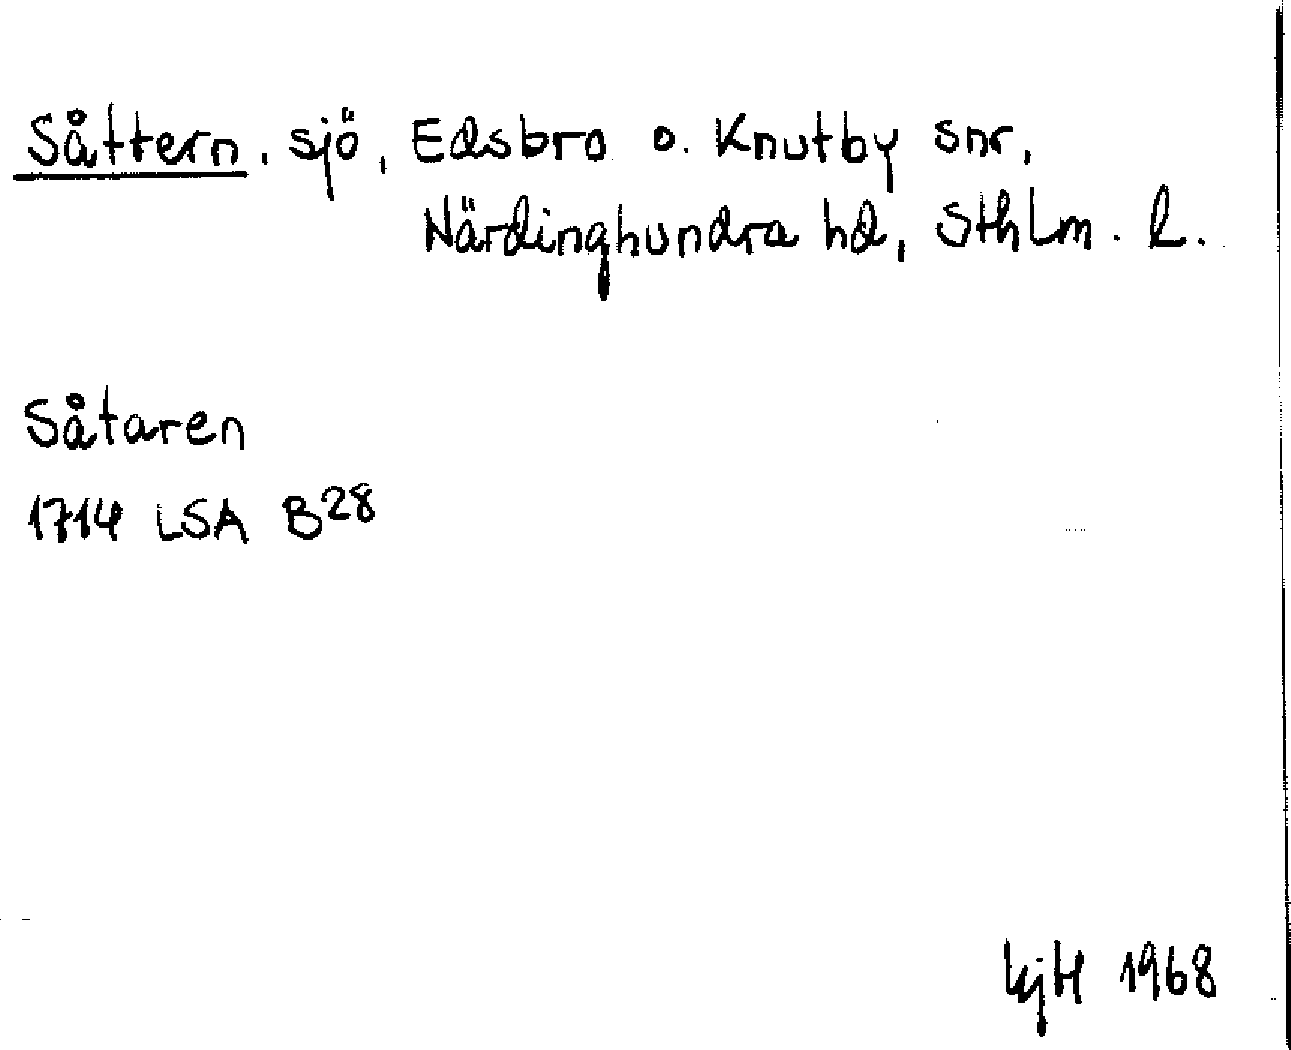 Såttern, sjö, Edsbro o. Knutby snr,
Närdinghundra hd, Sthlm. l.
Såtaren
1714 LSA B28
KjH 1968